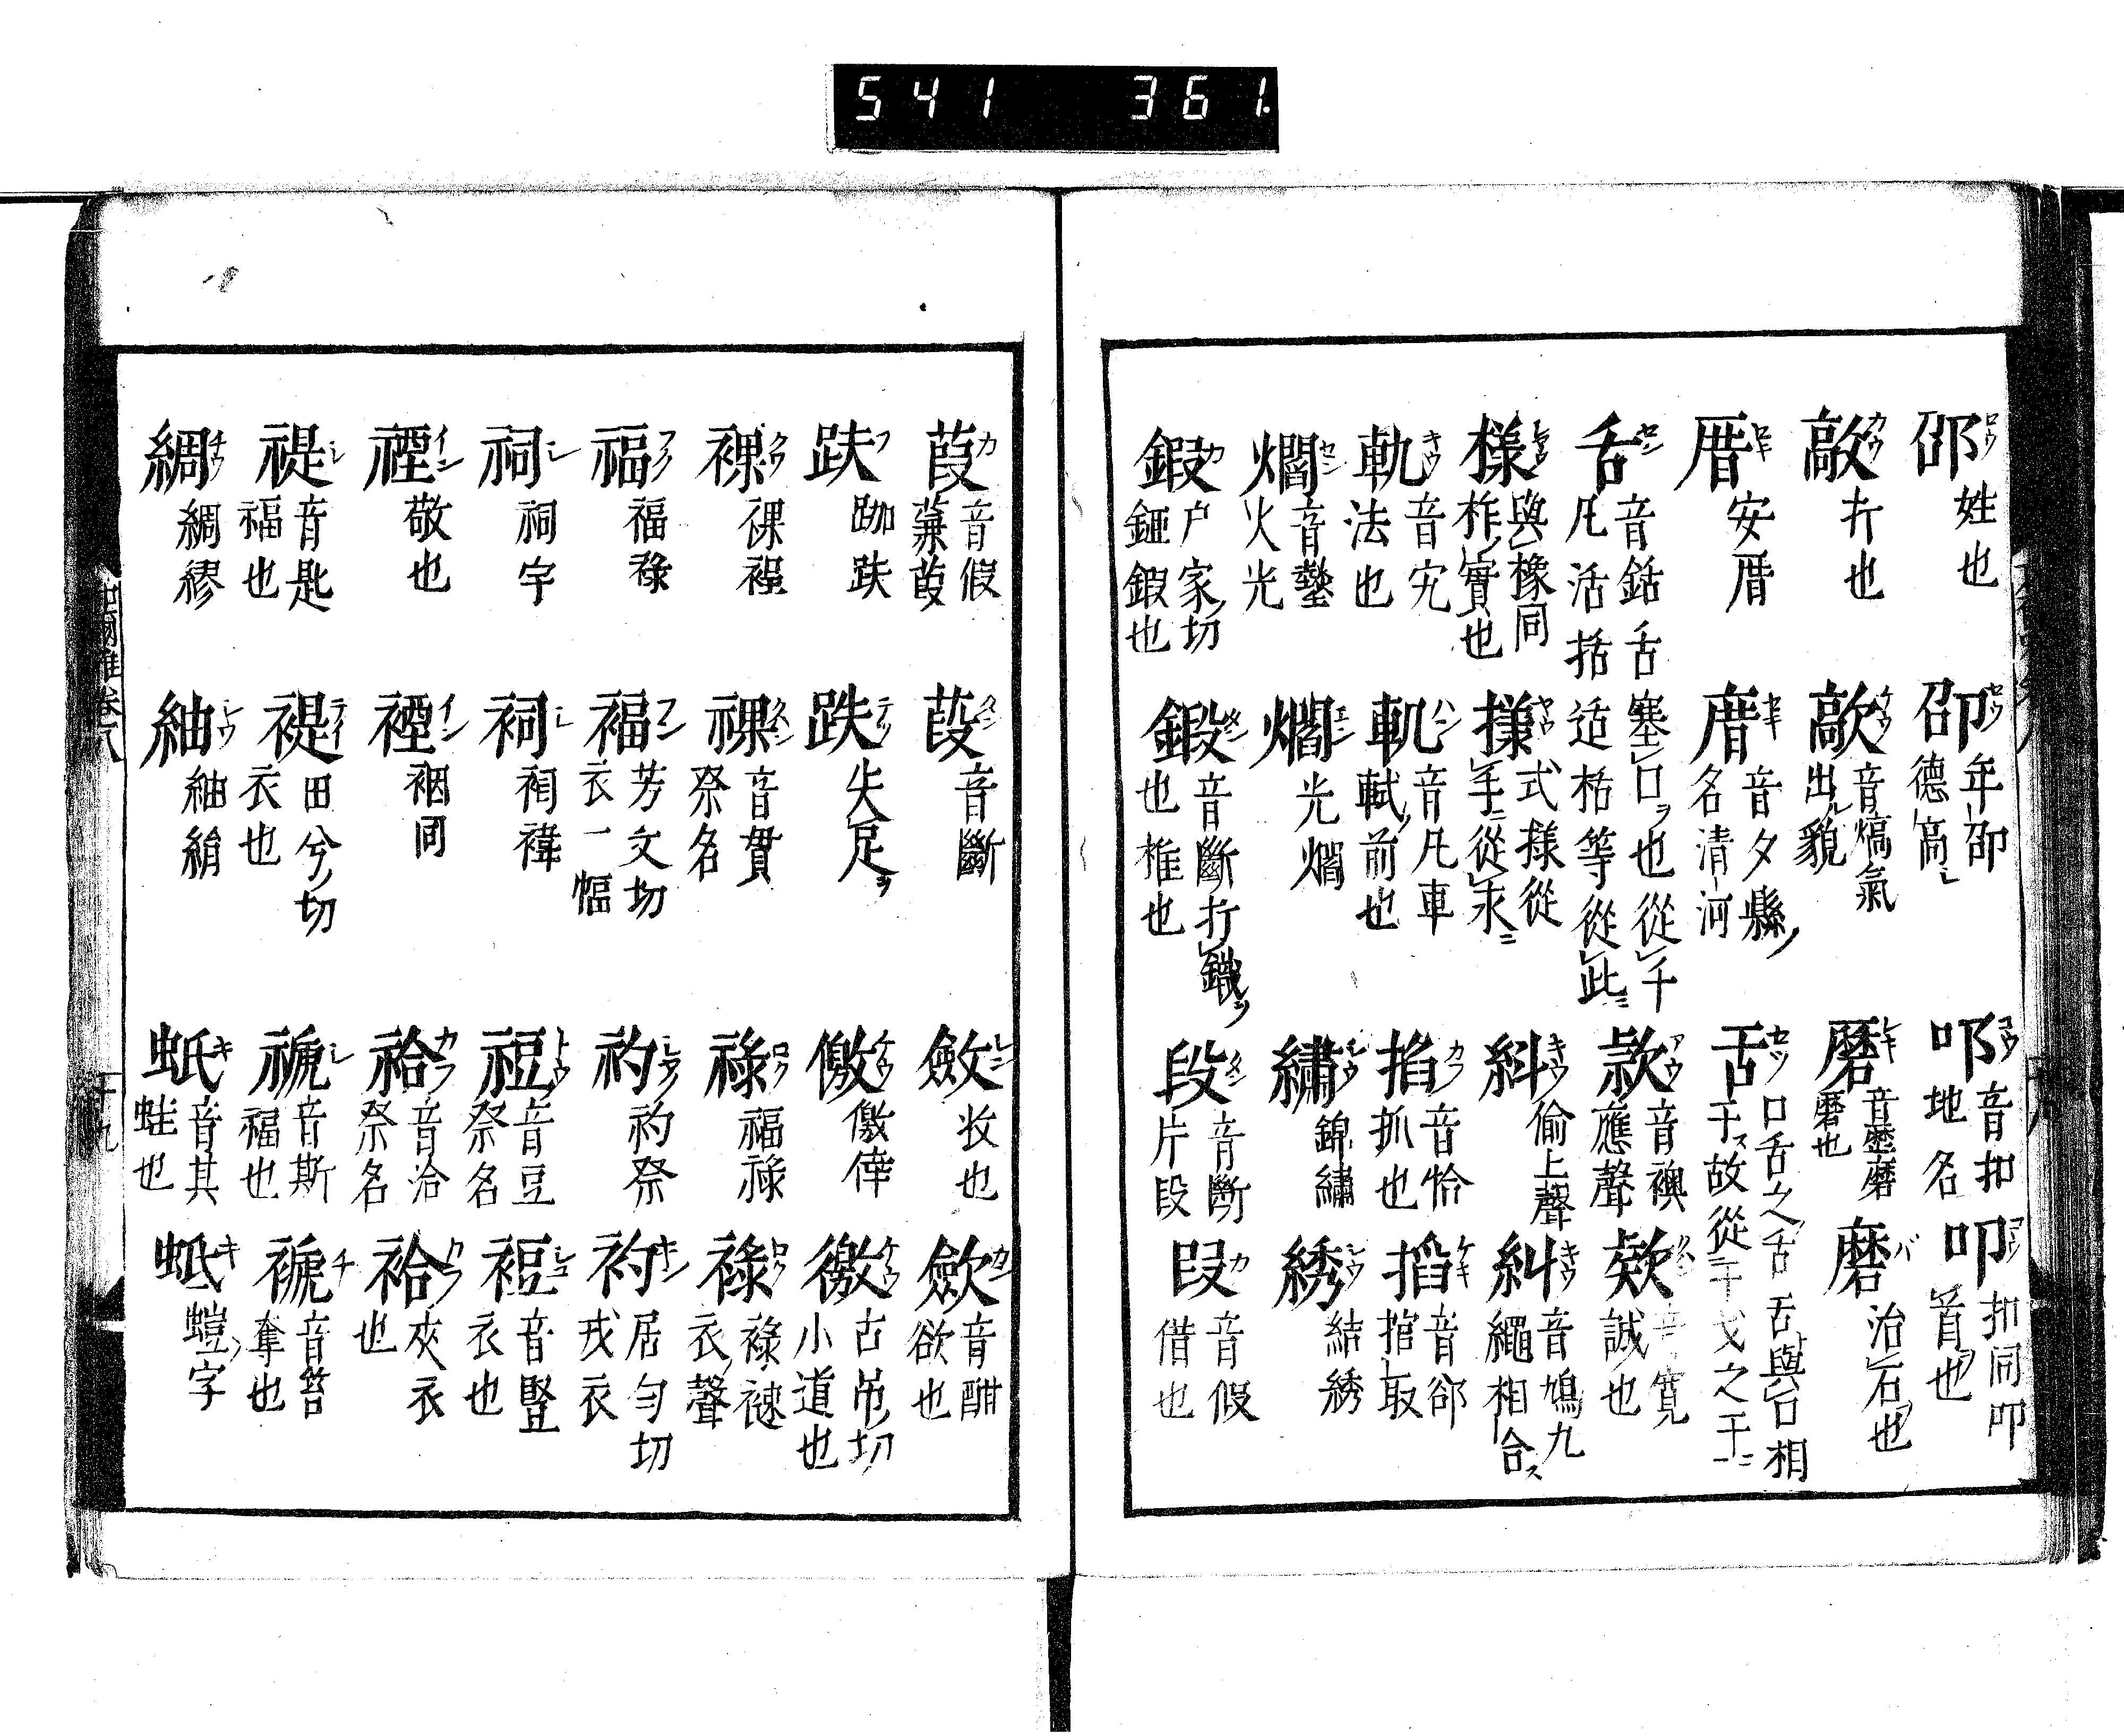 541 361
邵 姓也 卲 年卲德高 叩 音扣地名 叩 扣同叩首也
敲 击也 歊 音熇氣出貌 磿 音歷磨磿也 磨 治石也
厝 安厝 厝 音夕縣名清河 舌 口舌之舌舌與口相干故從干干戈之干
舌 音銛舌塞口也從千凡活括适栝等從此 欸 音襖應聲 欵 音寬誠也
樣 與橡同柞實也 様 式様從手從永 糾 偷上聲 糾 音鳩九繩相合
軌 音宄法也 軓 音凡車軾前也 掐 音恰抓也 搯 音郤掐取
爓 音爇火光 爓 光爓 繡 錦繡 綉 結綉
鍜 户家切錏鍜也 鍛 音斷打鐵也椎也 段 音斷片段 叚 音假借也
葭 音假蒹葭 葮 音斷 斂 收也 歛 音酣欲也
趺 跏趺 跌 失足 儌 儌倖 徼 古吊切小道也
祼 裸裎 祼 音貫祭名 祿 福祿 祿 祿䘵衣聲
福 福祿 褔 芳文切衣一幅 礿 礿祭 袀 居勻切戎衣
祠 祠宇 袻 禂褘 䄈 音豆祭名 裋 音豎衣也
禋 敬也 裀 裀同 祫 音洽祭名 袷 夾衣也
禔 音匙福也 褆 田兮切衣也 禠 音斯福也 褫 音笞奪也
綢 綢繆 紬 紬絹 蚔 音其蛙也 蚳 螘字